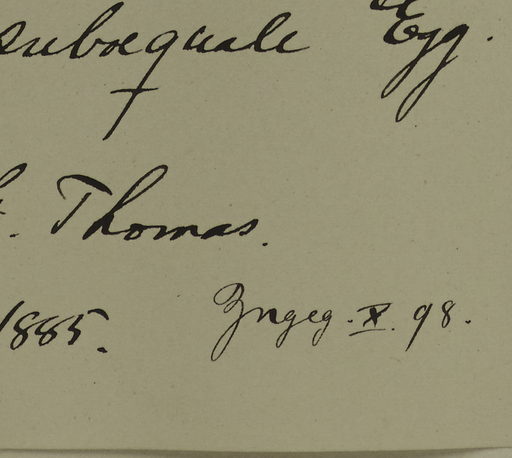 subaequale Egg.
St. Thomas.
1885. Ingeg. X. 98.